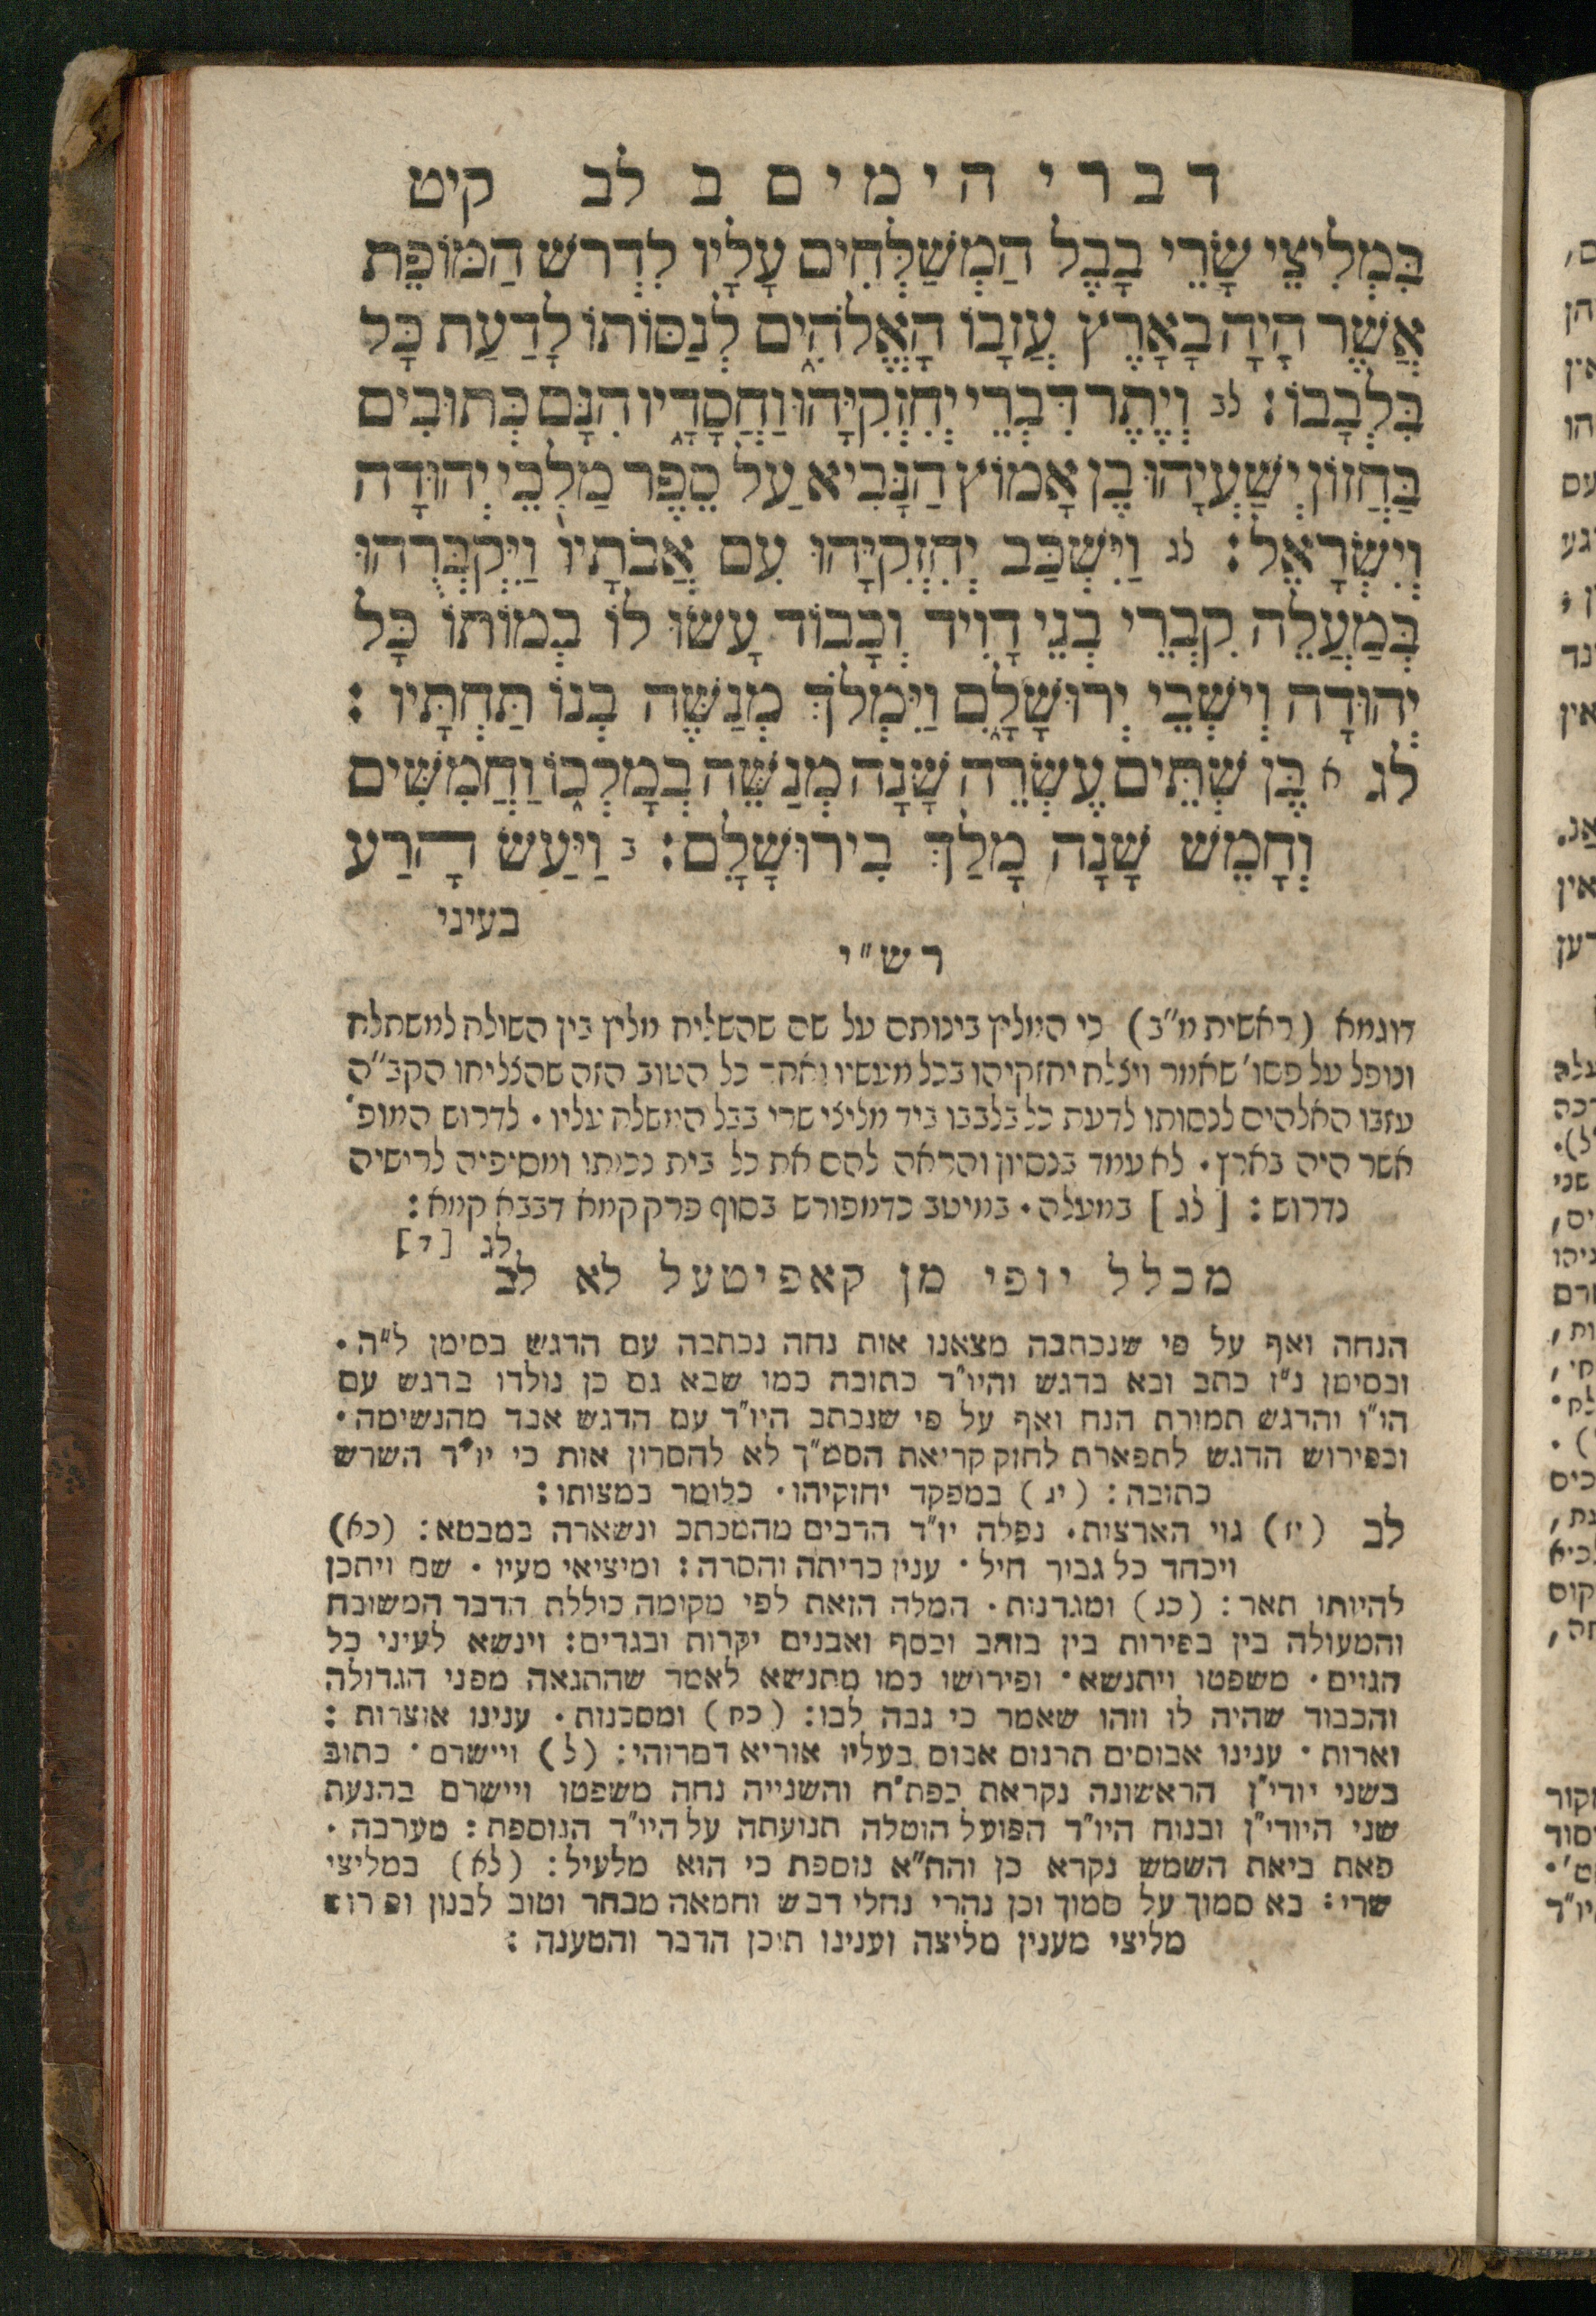 דברי הימים ב לב קיט
בִּמְלִיצֵי שָׂרֵי בָבֶל הַמְשַׁלְּחִים עָלָיו לִדְרֹשׁ הַמּוֹפֵת
אֲשֶׁר הָיָה בָאָרֶץ עֲזָבוֹ הָאֱלֹהִים לְנַסּוֹתוֹ לָדַעַת כָּל
בִּלְבָבוֹ: לב וְיֶתֶר דִּבְרֵי יְחִזְקִיָּהוּ וַחֲסָדָיו הִנָּם כְּתוּבִים
בַּחֲזוֹן יְשַׁעְיָהוּ בֶן אָמוֹץ הַנָּבִיא עַל סֵפֶר מַלְכֵי יְהוּדָה
וְיִשְׂרָאֵל: לג וַיִּשְׁכַּב יְחִזְקִיָּהוּ עִם אֲבֹתָיו וַיִּקְבְּרֻהוּ
בְּמַעֲלֵה קִבְרֵי בְנֵי דָוִיד וְכָבוֹד עָשׂוּ לוֹ בְמוֹתוֹ כָּל
יְהוּדָה וְיֹשְׁבֵי יְרוּשָׁלָםִ וַיִּמְלֹךְ מְנַשֶּׁה בְנוֹ תַּחְתָּיו:
לג א בֶּן שְׁתֵּים עֶשְׂרֵה שָׁנָה מְנַשֶּׁה בְמָלְכוֹ וַחֲמִשִּׁים
וְחָמֵשׁ שָׁנָה מָלַךְ בִּירוּשָׁלָםִ: ב וַיַּעַשׂ הָרַע
בעיני
רש"י
דוגמא (ראשית מ"ב) כי המליץ בינותם על שם שהשליח מליץ בין השולח למשתלח
ונופל על פסו' שאמר ויצלח יחזקיהו בכל מעשיו ואחר כל הטוב הזה שהצליחו הקב"ה
עזבו האלהים לנסותו לדעת כל בלבבו ביד מליצי שרי בבל המשלח' עליו. לדרוש המופ'
אשר היה בארץ. לא עמד בנסיון והראה להם את כל בית נכותו ומסיפיה לרישיה
נדרוש: [לג] במעלה. במיטב כדמפורש בסוף פרק קמא דבבא קמא:
לג [י]
מכלל יופי מן קאפיטעל לא לב
הנחה ואף על פי שנכתבה מצאנו אות נחה נכתבה עם הדגש בסימן ל"ה.
ובסימן נ"ז כתב ובא בדגש והיו"ד כתובה כמו שבא גם כן נולדו ברגש עם
הו"ו והדגש תמורת הנח ואף על פי שנכתב היו"ד עם הדגש אבד מהנשימה.
ובפירוש הדגש לתפארת לחזק קריאת הסמ"ך לא לחסרון אות כי יו"ד השרש
כתובה: (יג) במפקד יחזקיהו. כלומר במצותו:
לב (יז) גוי הארצות. נפלה יו"ד הרבים מהמכתב ונשארה במבטא: (כא)
ויכחד כל גבור חיל. ענין כריתה והסרה: ומיציאי מעיו. שם ויתכן
להיותו תאר: (כג) ומגדנות. המלה הזאת לפי מקומה כוללת הדבר המשובח
והמעולה בין בפירות בין בזהב וכסף ואבנים יקרות ובגדים: וינשא לעיני כל
הגוים. משפטו ויתנשא. ופירושו כמו מתנשא לאמר שהתגאה מפני הגדולה
והכבוד שהיה לו וזהו שאמר כי גבה לבו: (כח) ומסכנות. ענינו אוצרות:
וארות. ענינו אבוסים תרגום אבוס בעליו אוריא דמרוהי: (ל) ויישרם. כתוב
בשני יודי"ן הראשונה נקראת בפת"ח והשנייה נחה משפטו ויישרם בהנעת
שני היודי"ן ובנוח היו"ד הפועל הוטלה תנועתה על היו"ד הנוספת: מערבה.
פאת ביאת השמש נקרא כן והה"א נוספת כי הוא מלעיל: (לא) במליצי
שרי: בא סמוך על סמוך וכן נהרי נחלי דבש וחמאה מבחר וטוב לבנון
מליצי מענין מליצה וענינו תיכן הדבר והטענה: